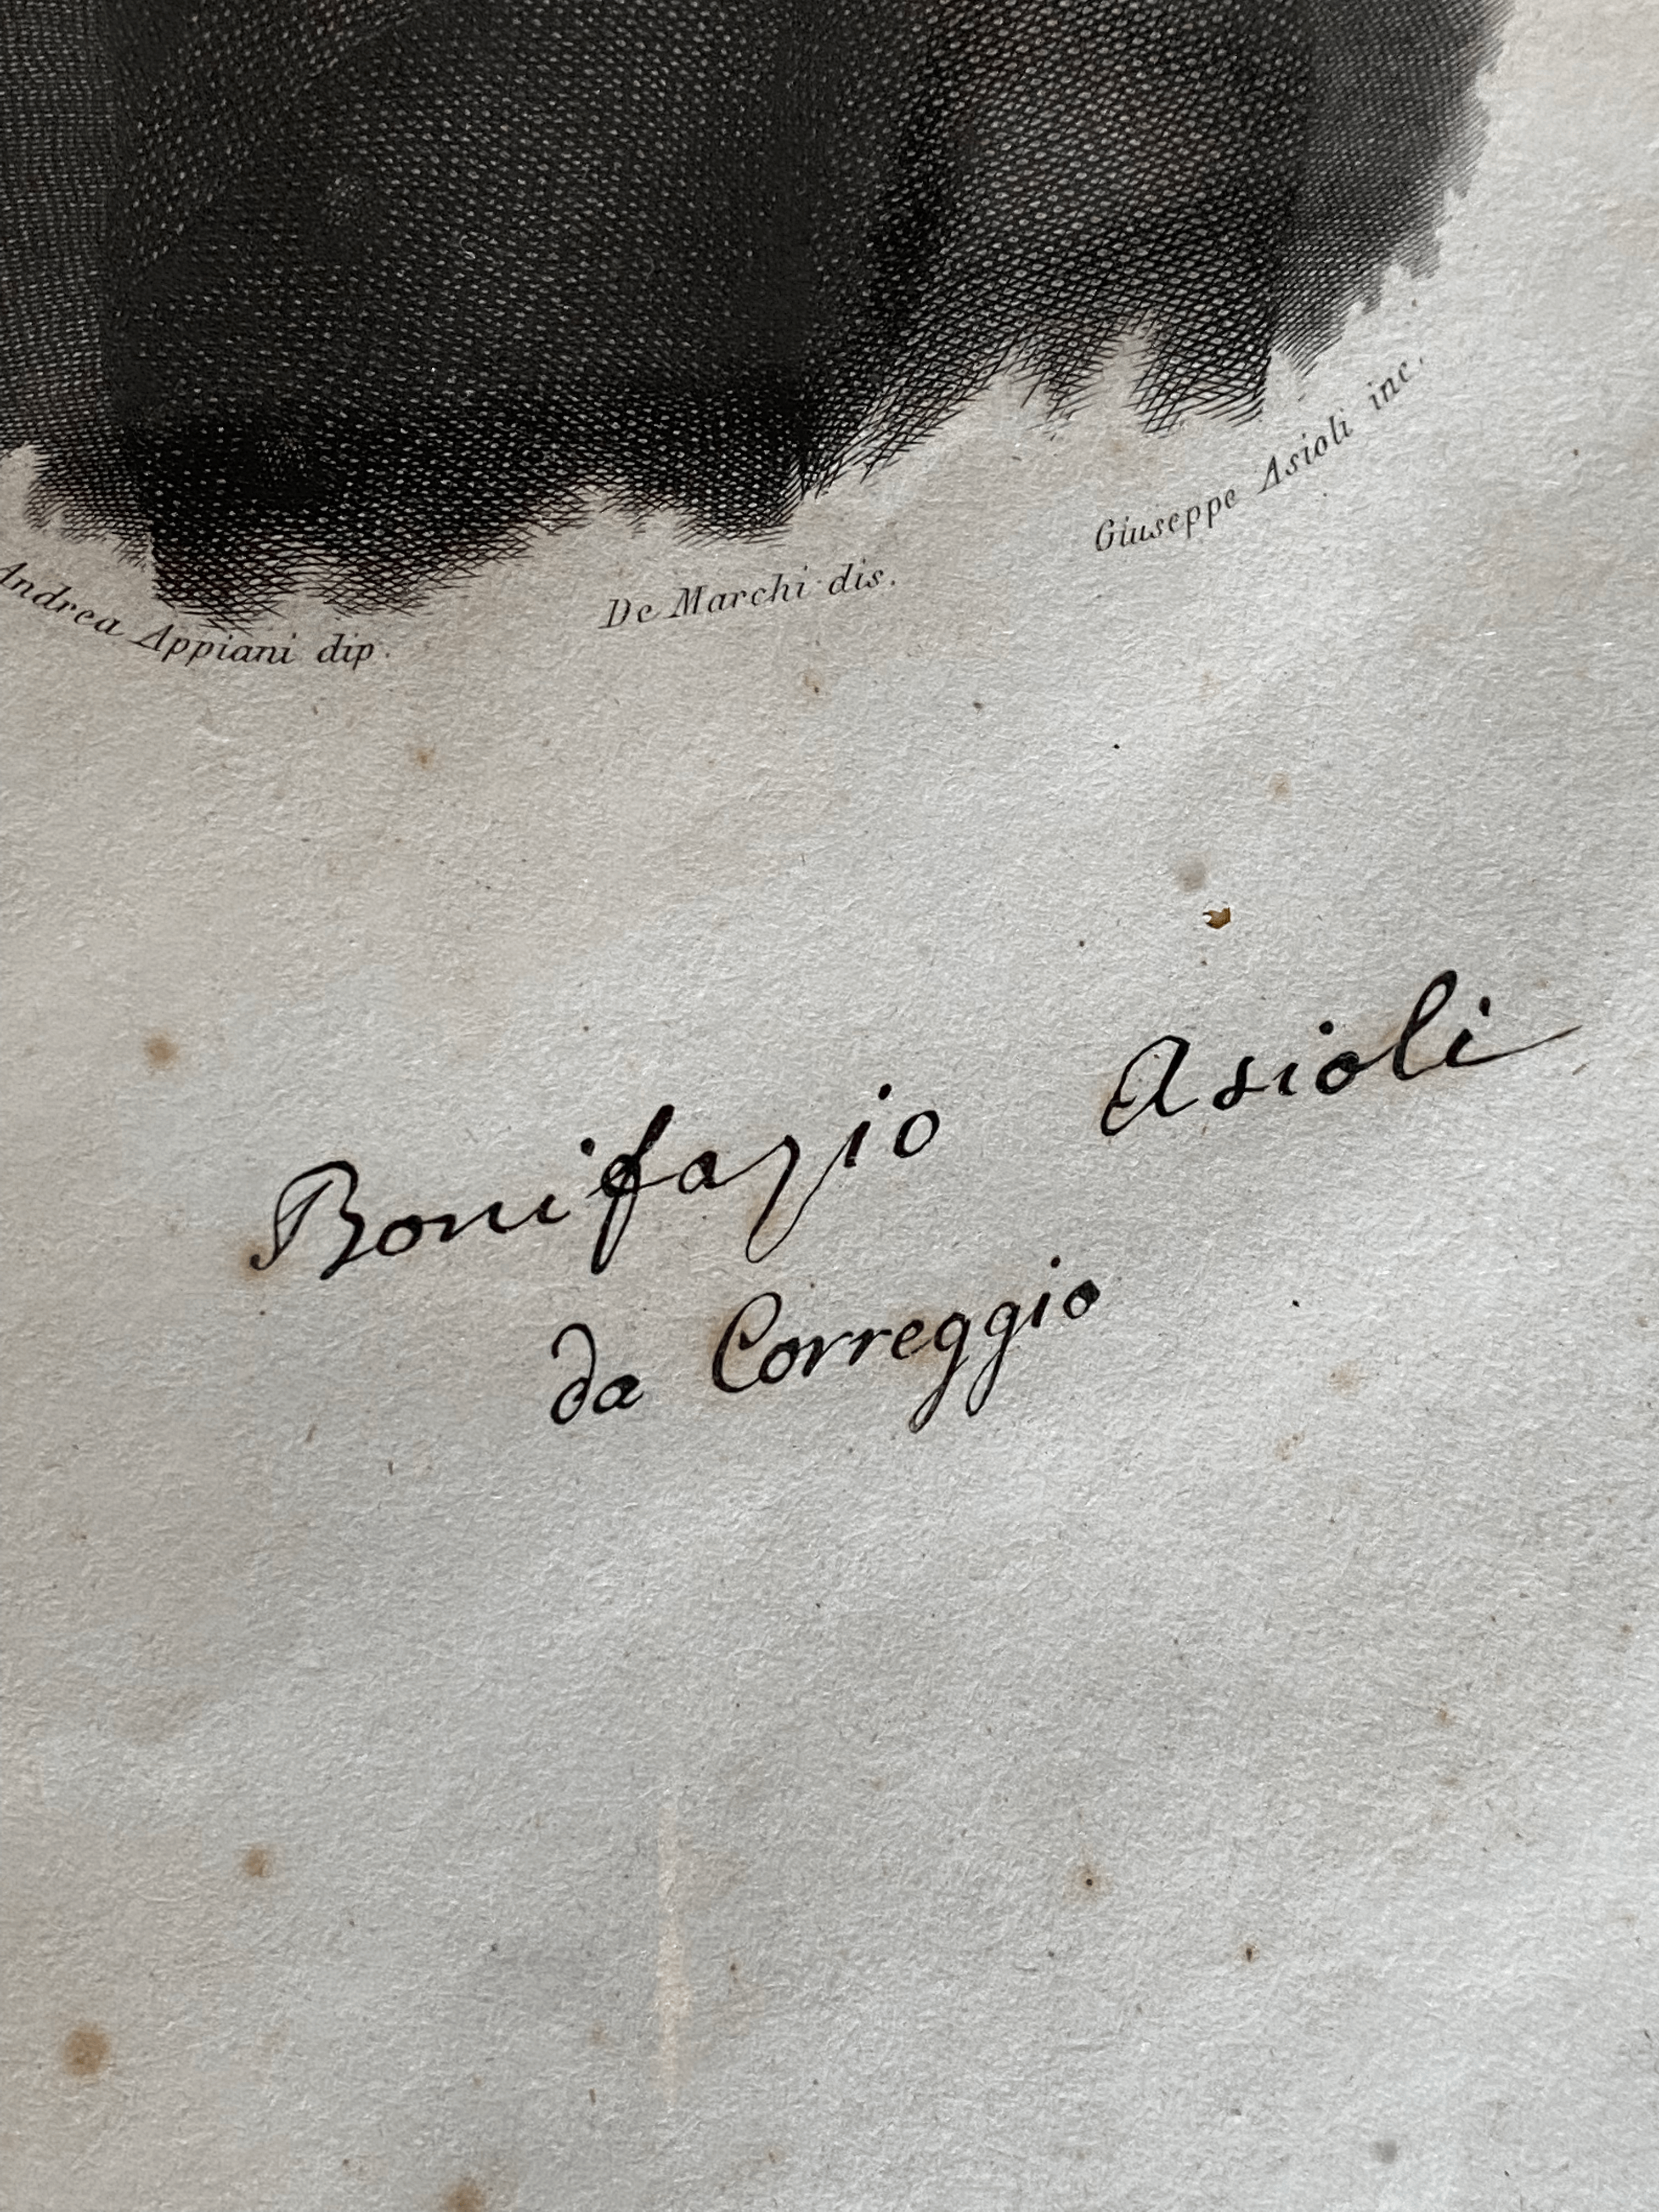 Andrea Appiani dip.
De Marchi dis.
Giuseppe Asioli inc.
Bonifazio Asioli
da Correggio